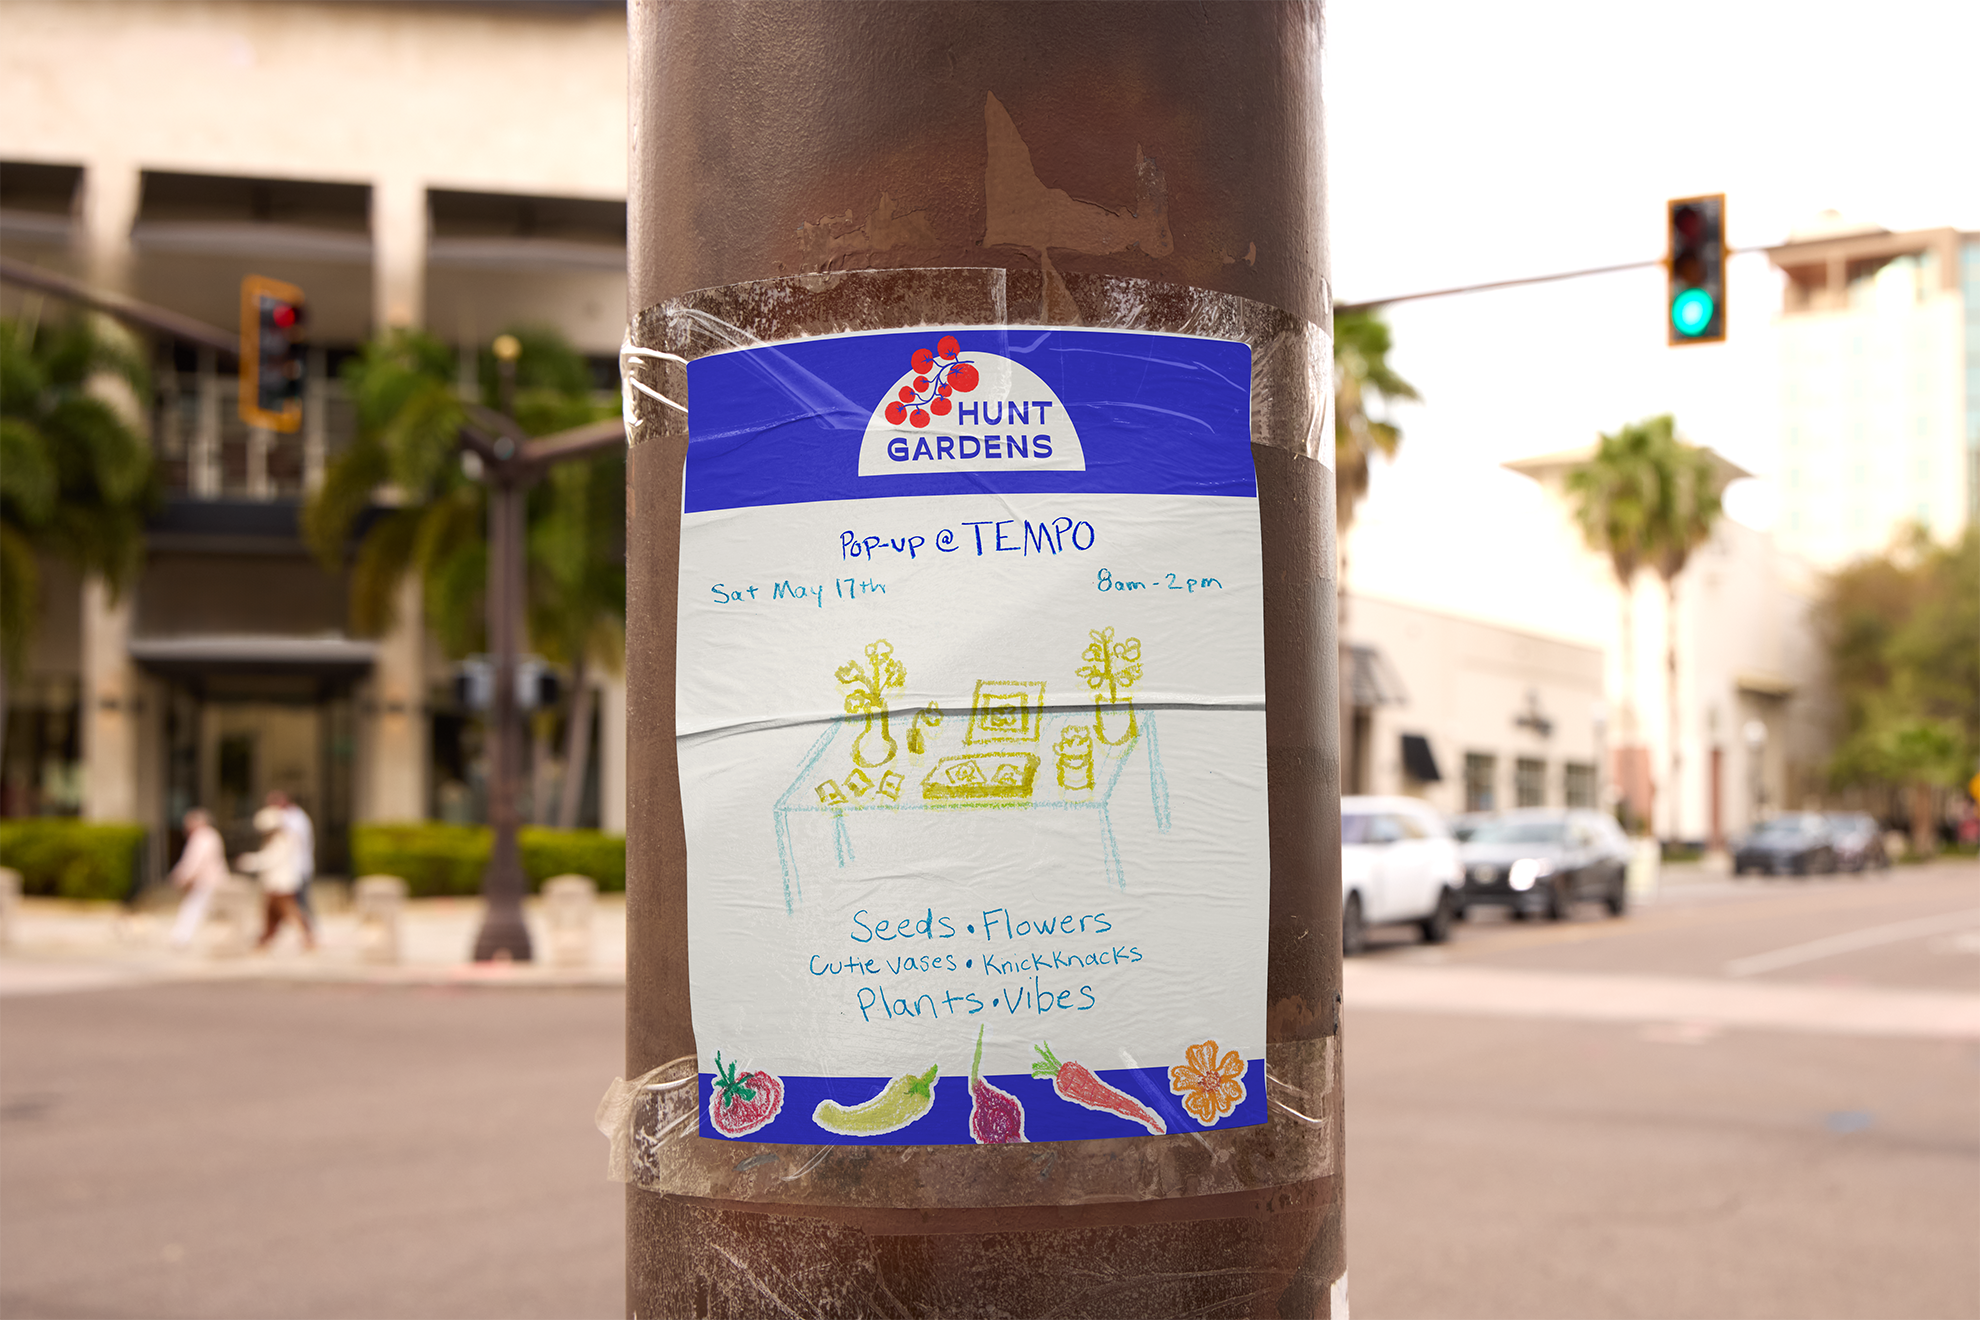 HUNT
GARDENS
Pop-up @ TEMPO
Sat May 17th
8am - 2pm
Seeds • Flowers
Cutie vases • KnickKnacks
Plants • Vibes